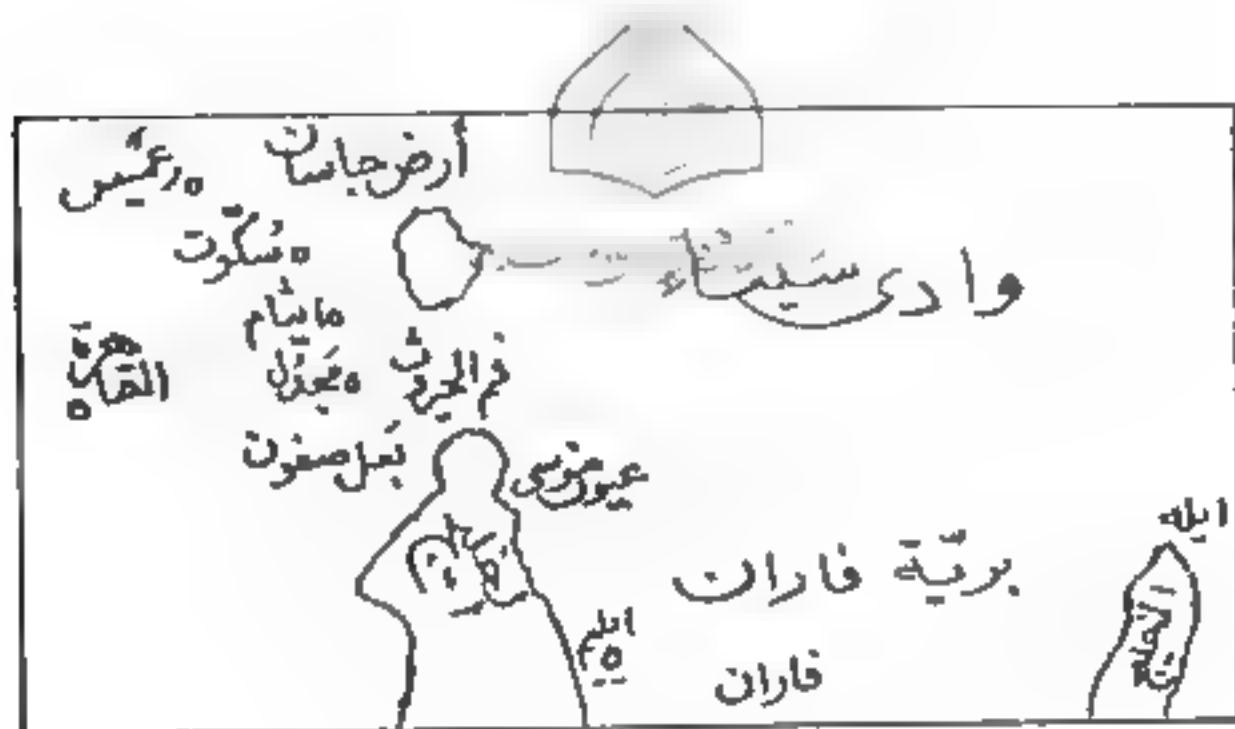 أرض جاسان
رعمسيس
سُكّوت
وادى سَيناء
مايثام
القاهرة
مَجدَل
فم الحيروث
بَعل صفون
عيون موسى
ايله
بريّة فاران
ايليم
فاران